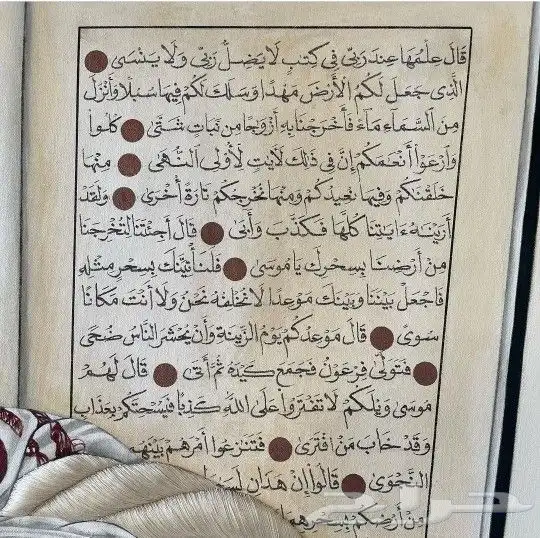 قَالَ عِلْمُهَا عِندَ رَبِّي فِي كِتَٰبٍ لَا يَضِلُّ رَبِّي وَلَا يَنسَى
الَّذِي جَعَلَ لَكُمُ الْأَرْضَ مَهْدًا وَسَلَكَ لَكُمْ فِيهَا سُبُلًا وَأَنزَلَ
مِنَ السَّمَاءِ مَاءً فَأَخْرَجْنَا بِهِ أَزْوَٰجًا مِن نَبَاتٍ شَتَّى كُلُوا
وَارْعَوْا أَنْعَٰمَكُمْ إِنَّ فِي ذَٰلِكَ لَآيَٰتٍ لِأُولِي النُّهَى مِنْهَا
خَلَقْنَٰكُمْ وَفِيهَا نُعِيدُكُمْ وَمِنْهَا نُخْرِجُكُمْ تَارَةً أُخْرَى وَلَقَدْ
أَرَيْنَٰهُ ءَايَٰتِنَا كُلَّهَا فَكَذَّبَ وَأَبَى قَالَ أَجِئْتَنَا لِتُخْرِجَنَا
مِنْ أَرْضِنَا بِسِحْرِكَ يَا مُوسَى فَلَنَأْتِيَنَّكَ بِسِحْرٍ مِثْلِهِ
فَاجْعَلْ بَيْنَنَا وَبَيْنَكَ مَوْعِدًا لَا نُخْلِفُهُ نَحْنُ وَلَا أَنتَ مَكَانًا
سُوًى قَالَ مَوْعِدُكُمْ يَوْمُ الزِّينَةِ وَأَنْ يُحْشَرَ النَّاسُ ضُحًى
فَتَوَلَّى فِرْعَوْنُ فَجَمَعَ كَيْدَهُ ثُمَّ أَتَى قَالَ لَهُمْ
مُوسَى وَيْلَكُمْ لَا تَفْتَرُوا عَلَى اللَّهِ كَذِبًا فَيُسْحِتَكُمْ بِعَذَابٍ
وَقَدْ خَابَ مَنِ افْتَرَى فَتَنَٰزَعُوا أَمْرَهُمْ بَيْنَهُمْ
النَّجْوَى قَالُوا إِنْ هَٰذَانِ
مِنْ أَرْضِكُمْ بِسِحْرِهِمَا
حراج